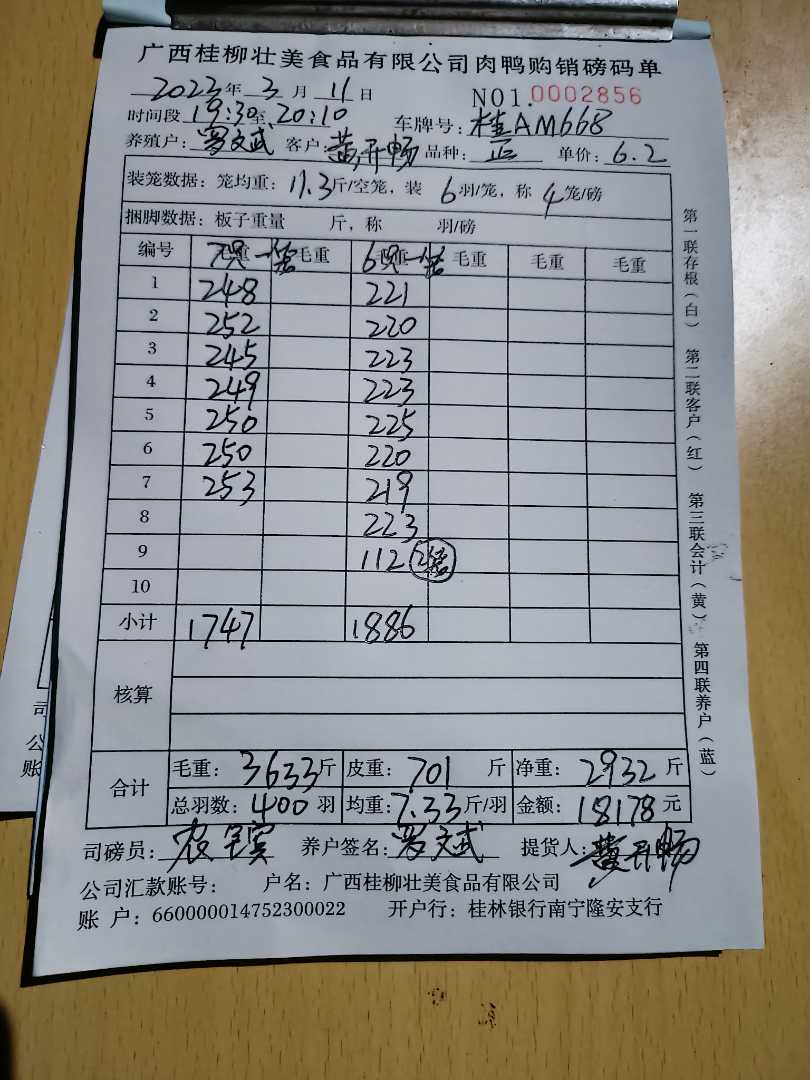 广西桂柳壮美食品有限公司肉鸭购销磅码单
2023年 3 月 11 日 NO1.0002856
时间段 19:30至20:10 车牌号: 桂AM668
养殖户: 罗文武 客户: 黄开畅 品种: 正 单价: 6.2
装笼数据: 笼均重: 11.3斤/空笼, 装 6羽/笼, 称 4笼/磅
捆脚数据: 板子重量 斤, 称 羽/磅
编号 毛重 7只一笼 毛重 毛重 6只一笼 毛重 毛重 毛重
1 248 221
2 252 220
3 245 223
4 249 223
5 250 225
6 250 220
7 253 219
8 223
9 112 (2笼)
10
小计 1747 1886
核算
合计 毛重: 3633斤 皮重: 701 斤 净重: 2932 斤
总羽数: 400 羽 均重: 7.33斤/羽 金额: 18178元
司磅员: 农 养户签名: 罗文武 提货人: 黄开畅
公司汇款账号: 户名: 广西桂柳壮美食品有限公司
账 户: 660000014752300022 开户行: 桂林银行南宁隆安支行
第一联存根(白) 第二联客户(红) 第三联会计(黄) 第四联养户(蓝)
司
公
账